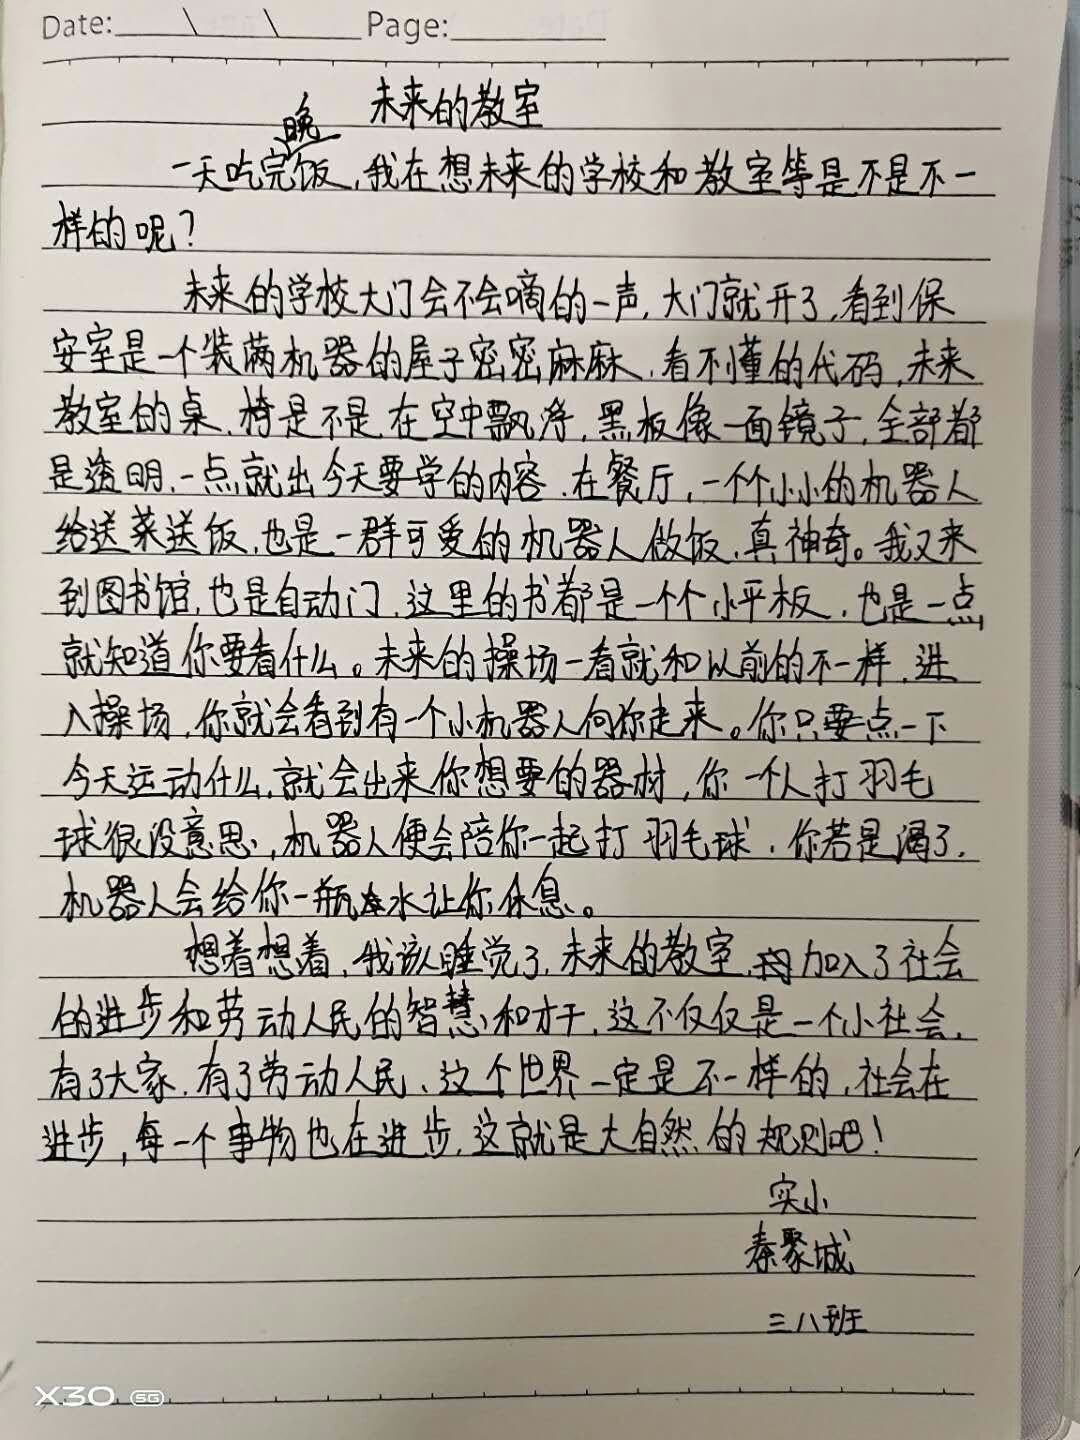 Date: \ \ Page:
未来的教室
一天吃完晚饭,我在想未来的学校和教室等是不是不一
样的呢?
未来的学校大门会不会嘀的一声,大门就开了,看到保
安室是一个装满机器的屋子密密麻麻,看不懂的代码,未来
教室的桌、椅是不是在空中飘浮,黑板像一面镜子,全部都
是透明,一点就出今天要学的内容、在餐厅,一个个小小的机器人
给送菜送饭,也是一群可爱的机器人做饭,真神奇。我又来
到图书馆,也是自动门,这里的书都是一个个小平板,也是一点
就知道你要看什么。未来的操场一看就和以前的不一样,进
入操场,你就会看到有一个小机器人向你走来。你只要点一下
今天运动什么,就会出来你想要的器材,你一个人打羽毛
球很没意思,机器人便会陪你一起打羽毛球,你若是渴了,
机器人会给你一瓶水让你休息。
想着想着,我该睡觉了,未来的教室,加入了社会
的进步和劳动人民的智慧和才干,这不仅仅是一个小社会,
有了大家,有了劳动人民、这个世界一定是不一样的,社会在
进步,每一个事物也在进步,这就是大自然的规则吧!
实小
秦聚城
三八班
X30 5G